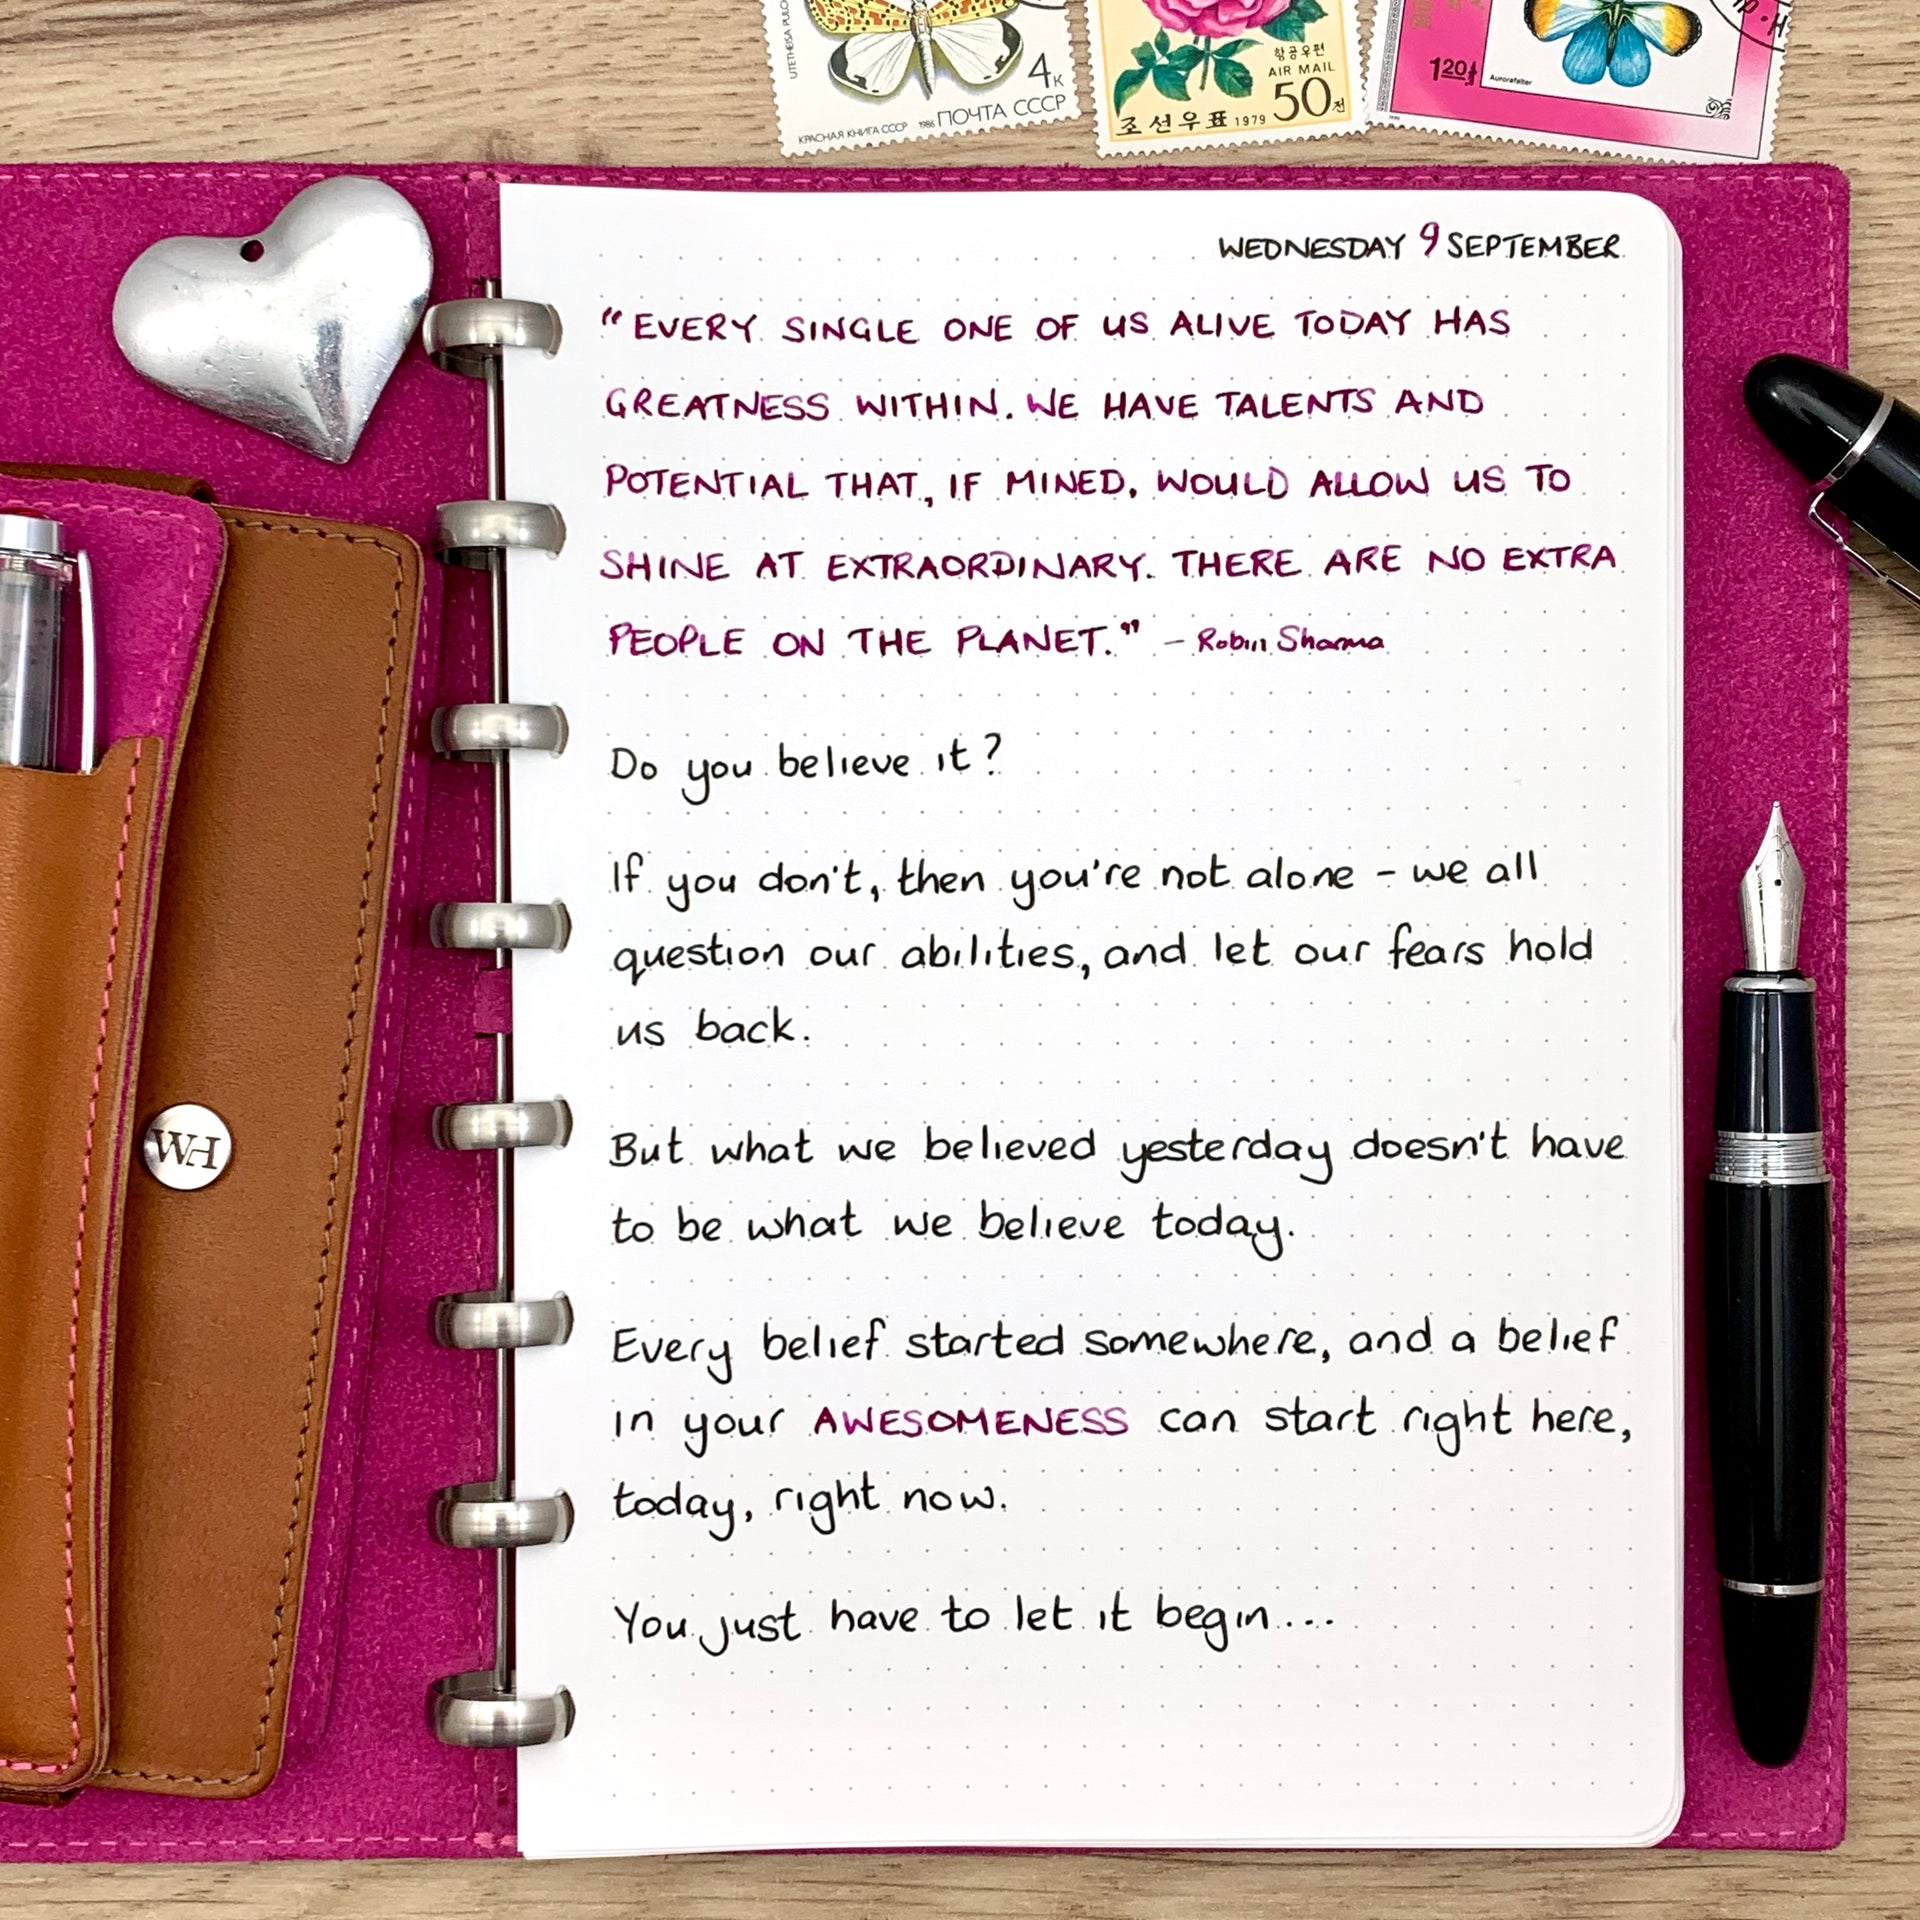 UTETHEISA PULCH
4к
КРАСНАЯ КНИГА СССР 1986 ПОЧТА СССР
항공우편
AIR MAIL
조선우표 1979 50전
1.20₮
Aurorafalter
WEDNESDAY 9 SEPTEMBER
“EVERY SINGLE ONE OF US ALIVE TODAY HAS
GREATNESS WITHIN. WE HAVE TALENTS AND
POTENTIAL THAT, IF MINED, WOULD ALLOW US TO
SHINE AT EXTRAORDINARY. THERE ARE NO EXTRA
PEOPLE ON THE PLANET.” – Robin Sharma
Do you believe it?
If you don't, then you're not alone – we all
question our abilities, and let our fears hold
us back.
But what we believed yesterday doesn't have
to be what we believe today.
Every belief started somewhere, and a belief
in your AWESOMENESS can start right here,
today, right now.
You just have to let it begin...
WH